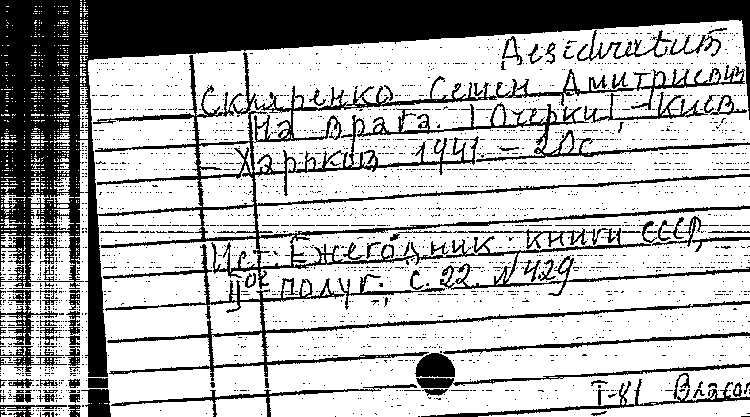 Desideratum
Скляренко Семен Дмитриевич
На врага. [Очерки], – Киев
– Харьков 1941. – 20с
Ист. Ежегодник книги СССР,
IIое полуг., с. 22. № 429
Т-81 Власо